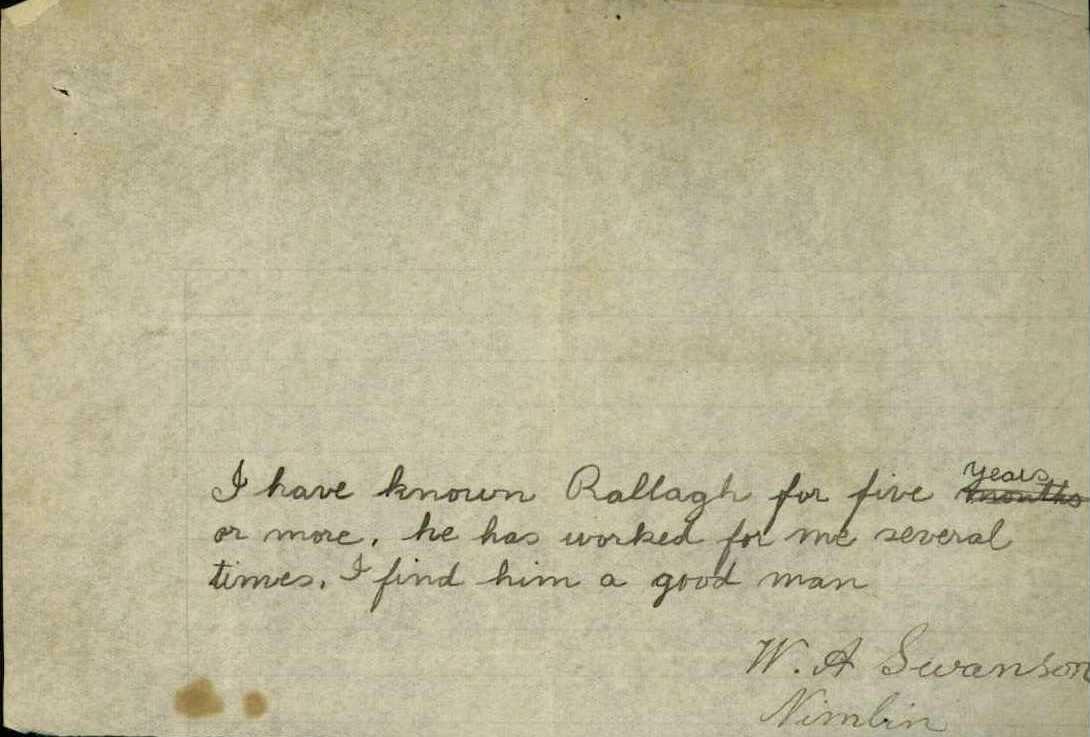 I have known Rallagh for five years months
or more, he has worked for me several
times. I find him a good man
W. A Swanson
Nimbin